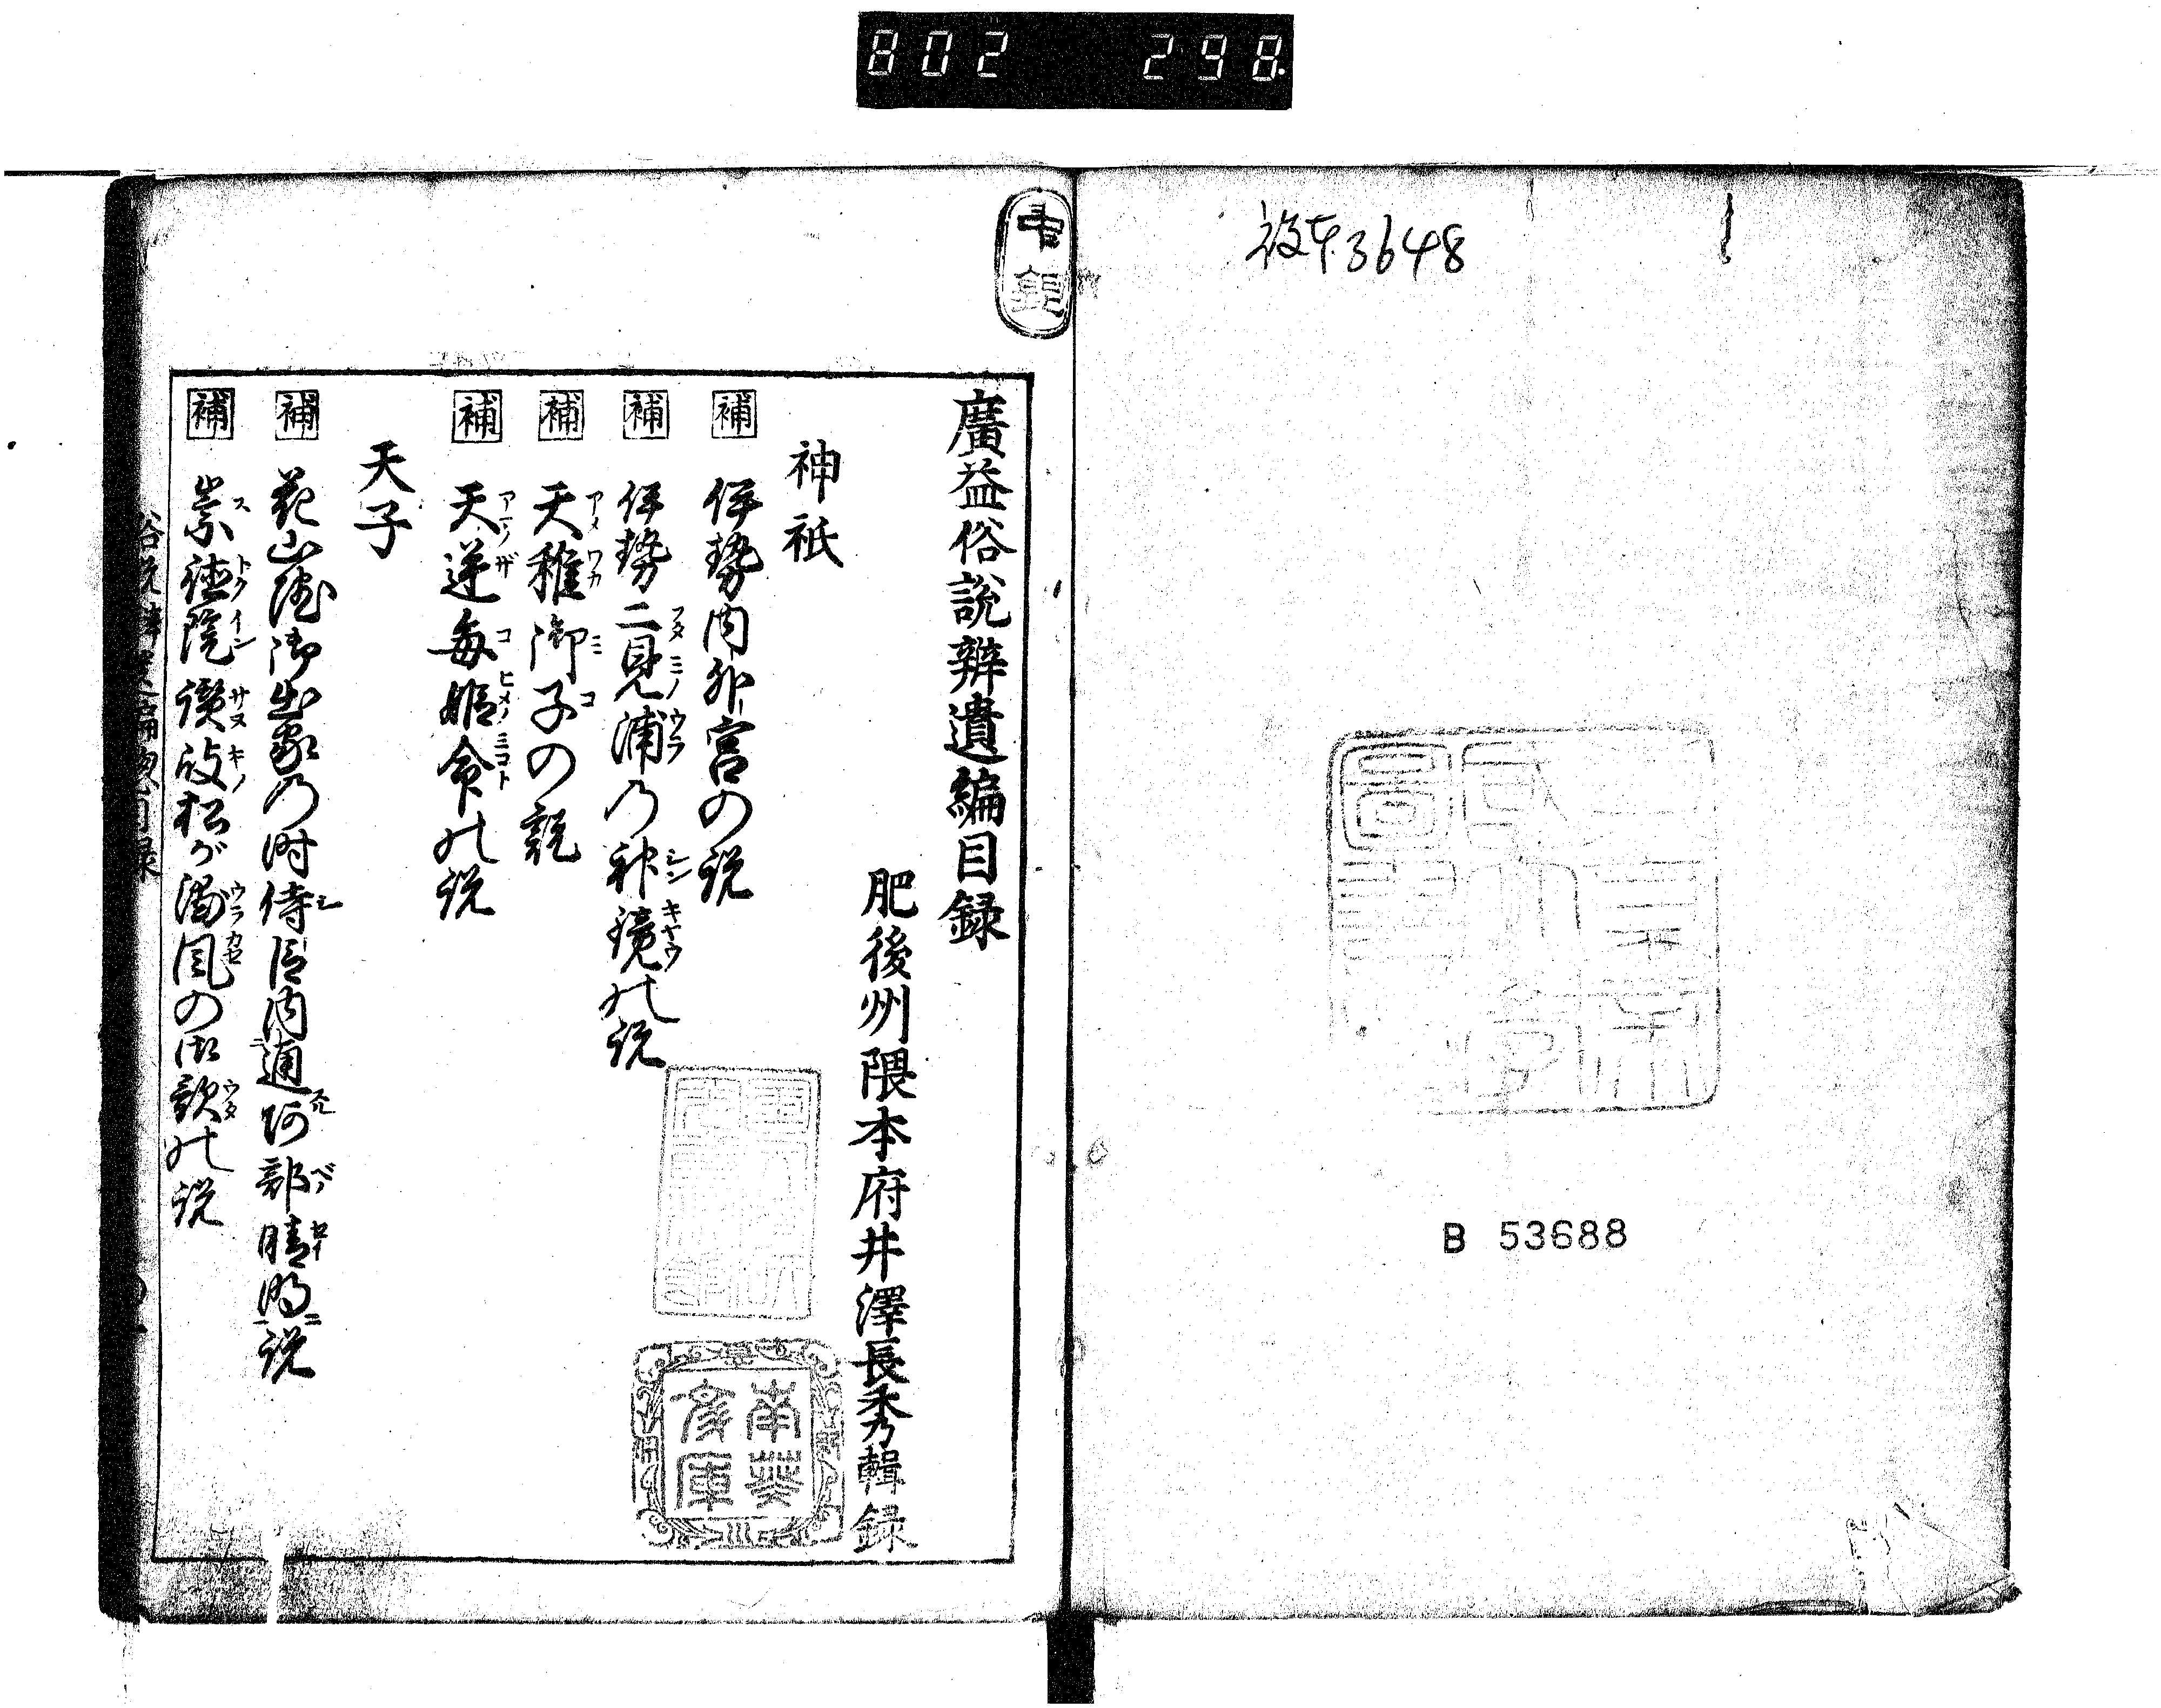 802 298
複本3648
B 53688
廣益俗說辯遺編目録
肥後州隈本府井澤長秀輯録
神祇
補 伊勢内外宮の説
補 伊勢二見浦乃神鏡の説
補 天稚御子の説
補 天逆毎姫命の説
天子
補 花山院御出家乃時侍臣内通阿部晴明ニ説
補 崇徳院讃岐松が浦風の御歌の説
南葵文庫